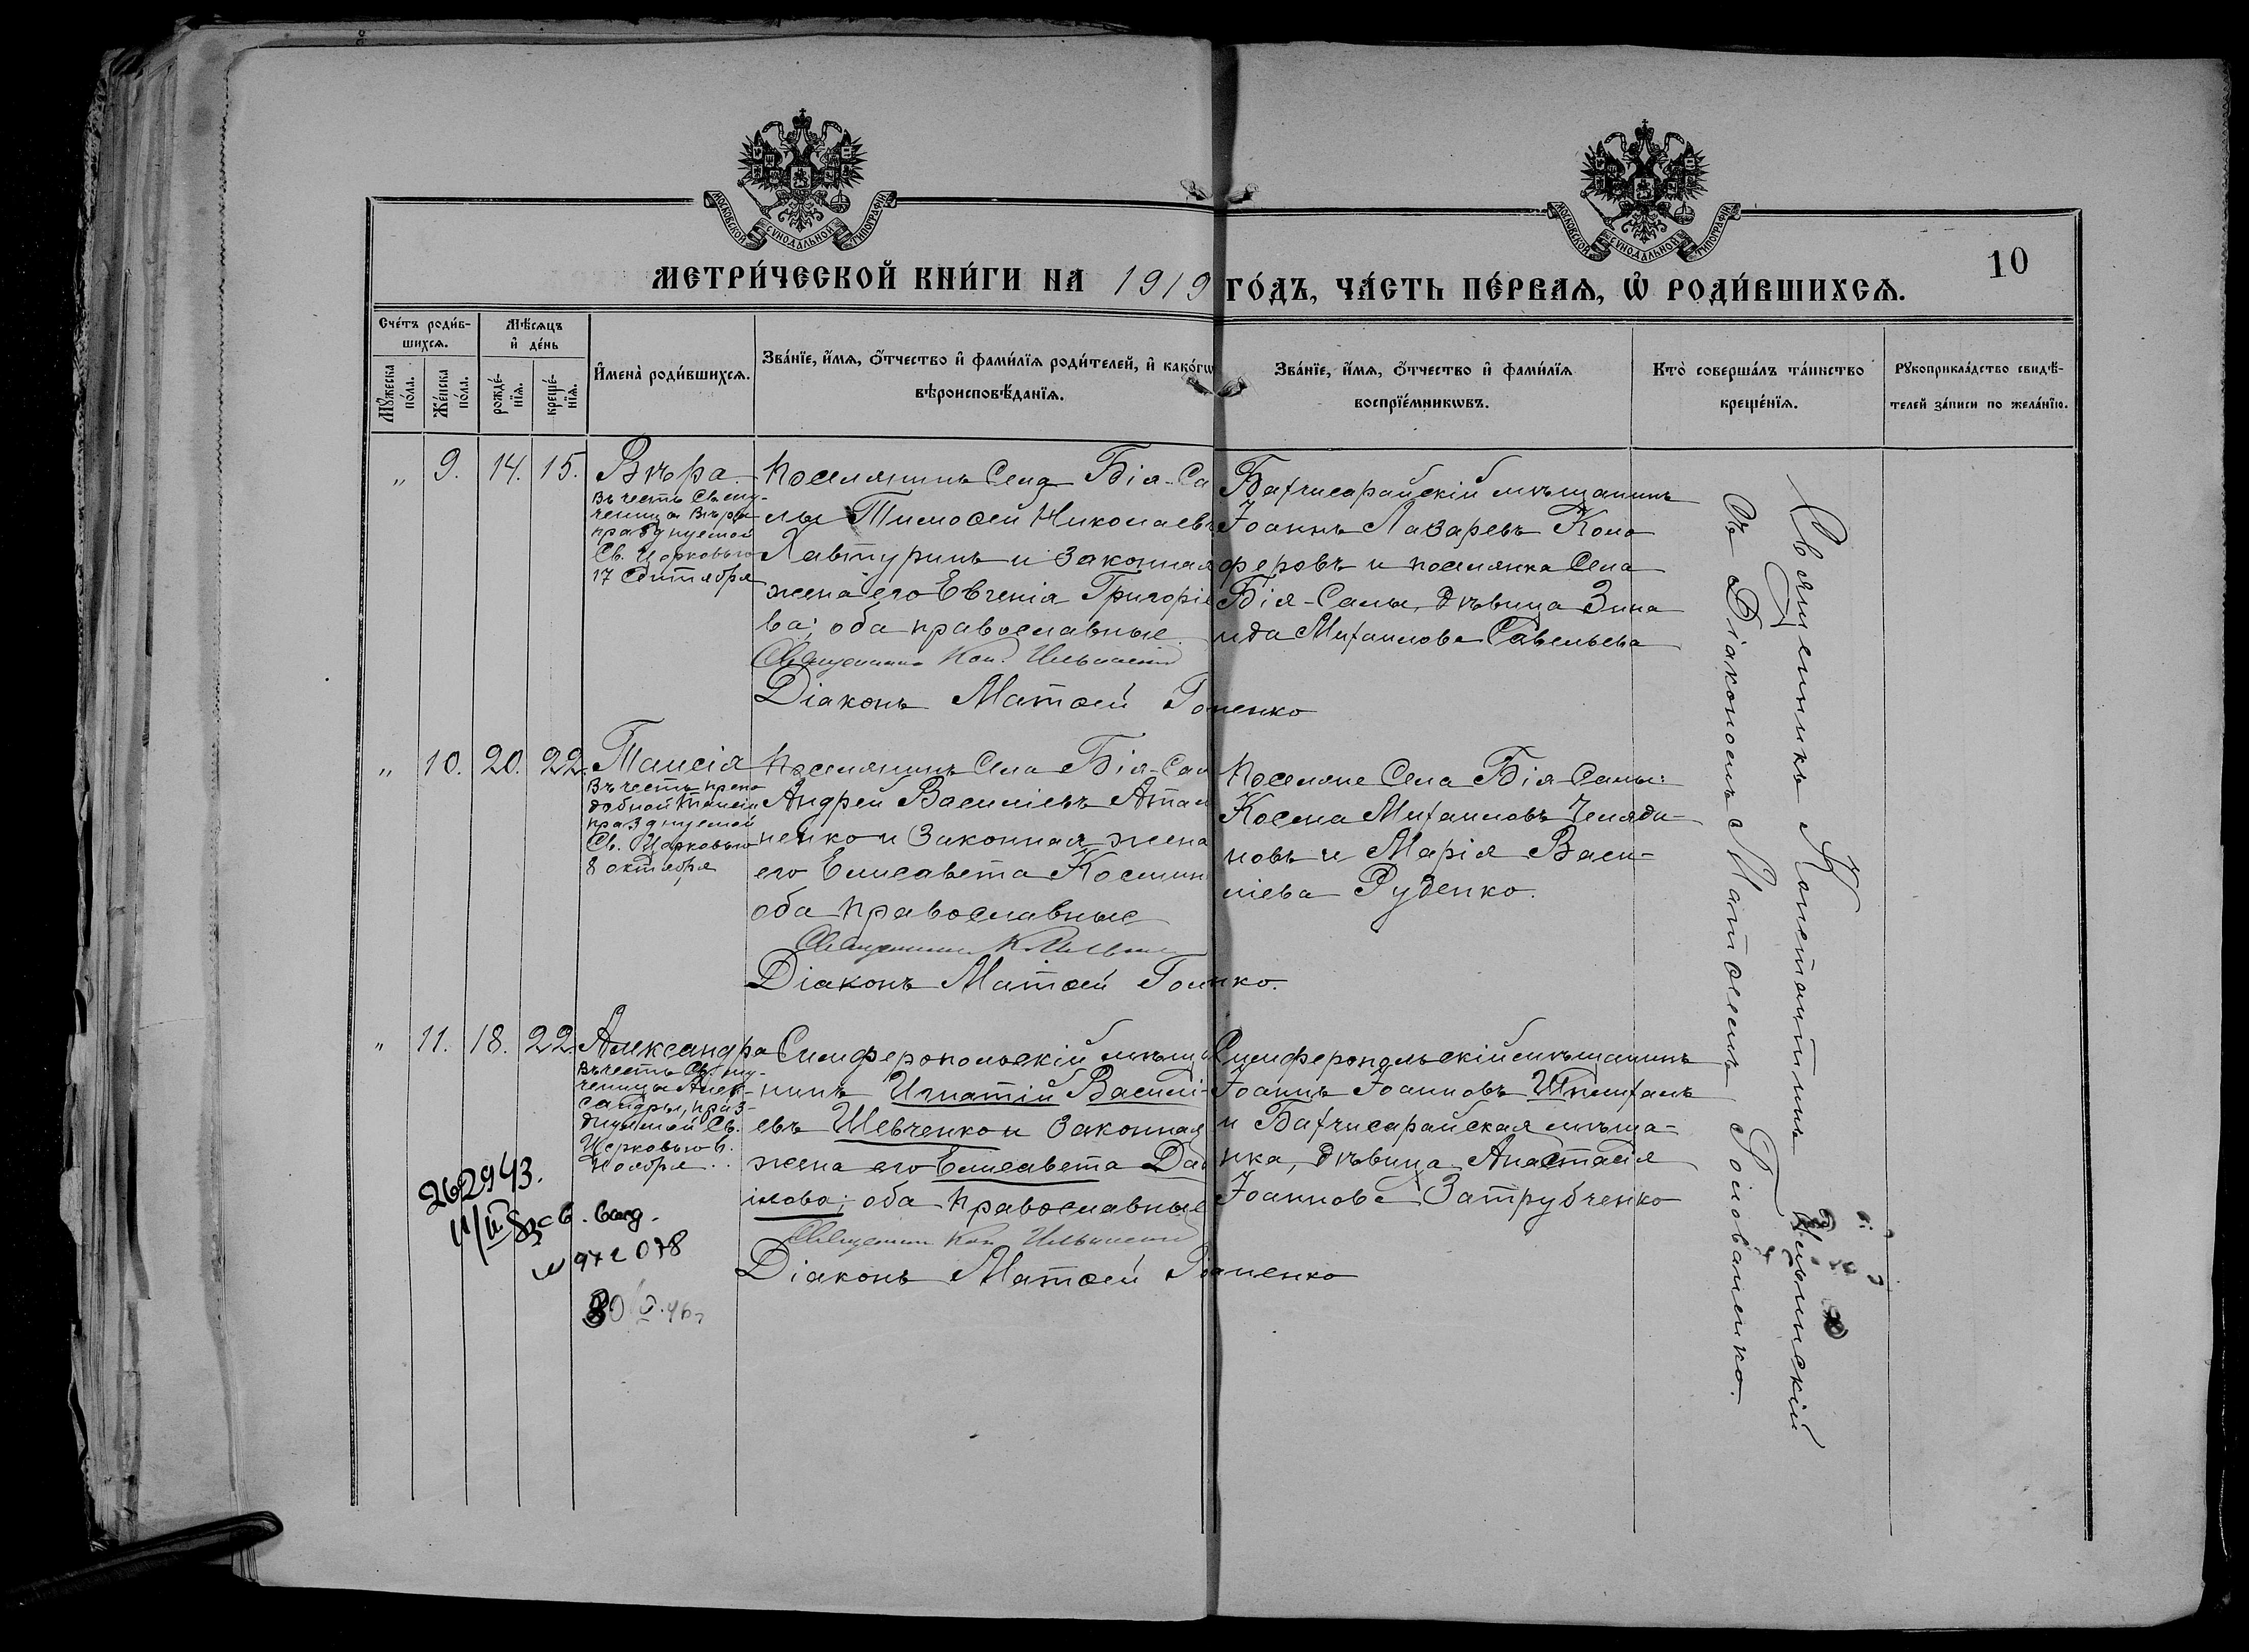 МОСКОВСКОЙ СѴНОДАЛЬНОЙ ТИПОГРАФІИ
МОСКОВСКОЙ СѴНОДАЛЬНОЙ ТИПОГРАФІИ
10
МЕТРИ́ЧЕСКОЙ КНИ́ГИ НА 1919 ГО́ДЪ, ЧА́СТЬ ПЕ́РВАЯ, Ѡ҆ РОДИ́ВШИХСѦ.
Сче́тъ роди́в-
шихсѧ.
Мѣ́сѧцъ
и҆ де́нь
Мꙋ́жеска по́ла.
Же́нска по́ла.
рожде́-
нїѧ.
креще́-
нїѧ.
И҆мена̀ роди́вшихсѧ.
Зва́нїе, и҆́мѧ, ѻ҆́тчество и҆ фами́лїѧ роди́телей, и҆ како́гѡ
вѣроисповѣ́данїѧ.
Зва́нїе, и҆́мѧ, ѻ҆́тчество и҆ фами́лїѧ
воспрїе́мникѡвъ.
Кто̀ соверша́лъ та́инство
креще́нїѧ.
Рꙋкоприкла́дство свидѣ́-
телей за́писи по жела́нїю.
„ 9. 14. 15. Вѣра.
Въ честь Св. му-
ченицы Вѣры
празднуемой
Св. Церковью
17 Сентября
Поселянинъ Села Бія-Са
лы Тимоѳей Николаевъ
Лавтуринъ и законная
жена его Евгенія Григоріе
ва; оба православные.
Священникъ Кон. Ильинскій
Діаконъ Матѳей Го ненко
Бахчисарайскій мѣщанинъ
Іоаннъ Лазаревъ Коло
феровъ и поселянка Села
Бія-Салы, дѣвица Зина
ида Михаилова Савельева
„ 10. 20. 22. Таисія
Въ честь препо
добной Таисіи
празднуемой
Св. Церковью
8 октября
Поселянинъ Села Бія-Сал
Андрей Василіевъ Атам
ненко и законная жена
его Елисавета Космин
оба православные
Священникъ К. Ильин
Діаконъ Матѳей Гол нко.
Поселяне Села Бія-Салы:
Косма Михаиловъ Челяди-
новъ и Марія Васи-
ліева Руденко.
„ 11. 18. 22. Александра
Въ честь Св. му-
ченицы Алек-
сандры, праз-
днуемой Св.
Церковью 6.
Ноября.
Симферопольскій мѣща
нинъ Игнатій Василі-
евъ Шевченко и законная
жена его Елисавета Дав
інова; оба православные
Священник Кон Ильинскій
Діаконъ Матѳей Го ненко
Симферопольскій мѣщанинъ
Іоаннъ Іоанновъ Шпигань
и Бахчисарайская мѣща-
нка, дѣвица Анастасія
Іоаннова Затрубченко
Священникъ Константинъ Ильинскій
съ Діакономъ Матѳеемъ Голованенко.
262943.
972078